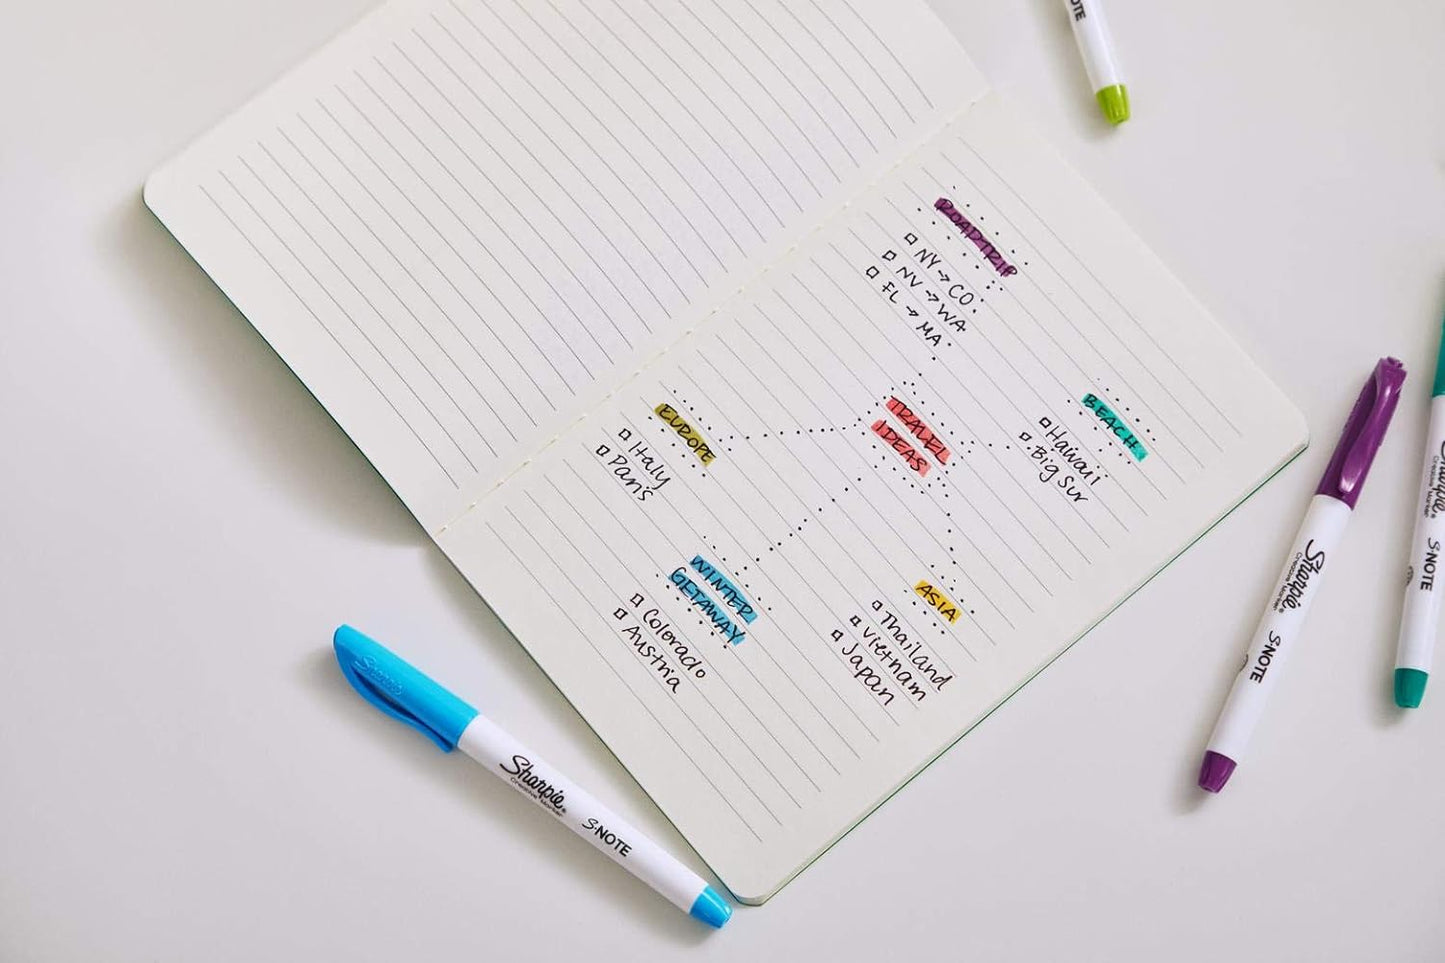 NOTE
ROADTRIP
NY → CO
NV → WA
FL → MA
TRAVEL
IDEAS
EUROPE
Italy
Paris
BEACH
Haiwaii
Big Sur
WINTER
GETAWAY
Colorado
Austria
ASIA
Thailand
Vietnam
Japan
Sharpie
Sharpie®
Creative Marker
S·NOTE
Sharpie®
Creative Marker
S·NOTE
Sharpie®
Creative Marker
S·NOTE